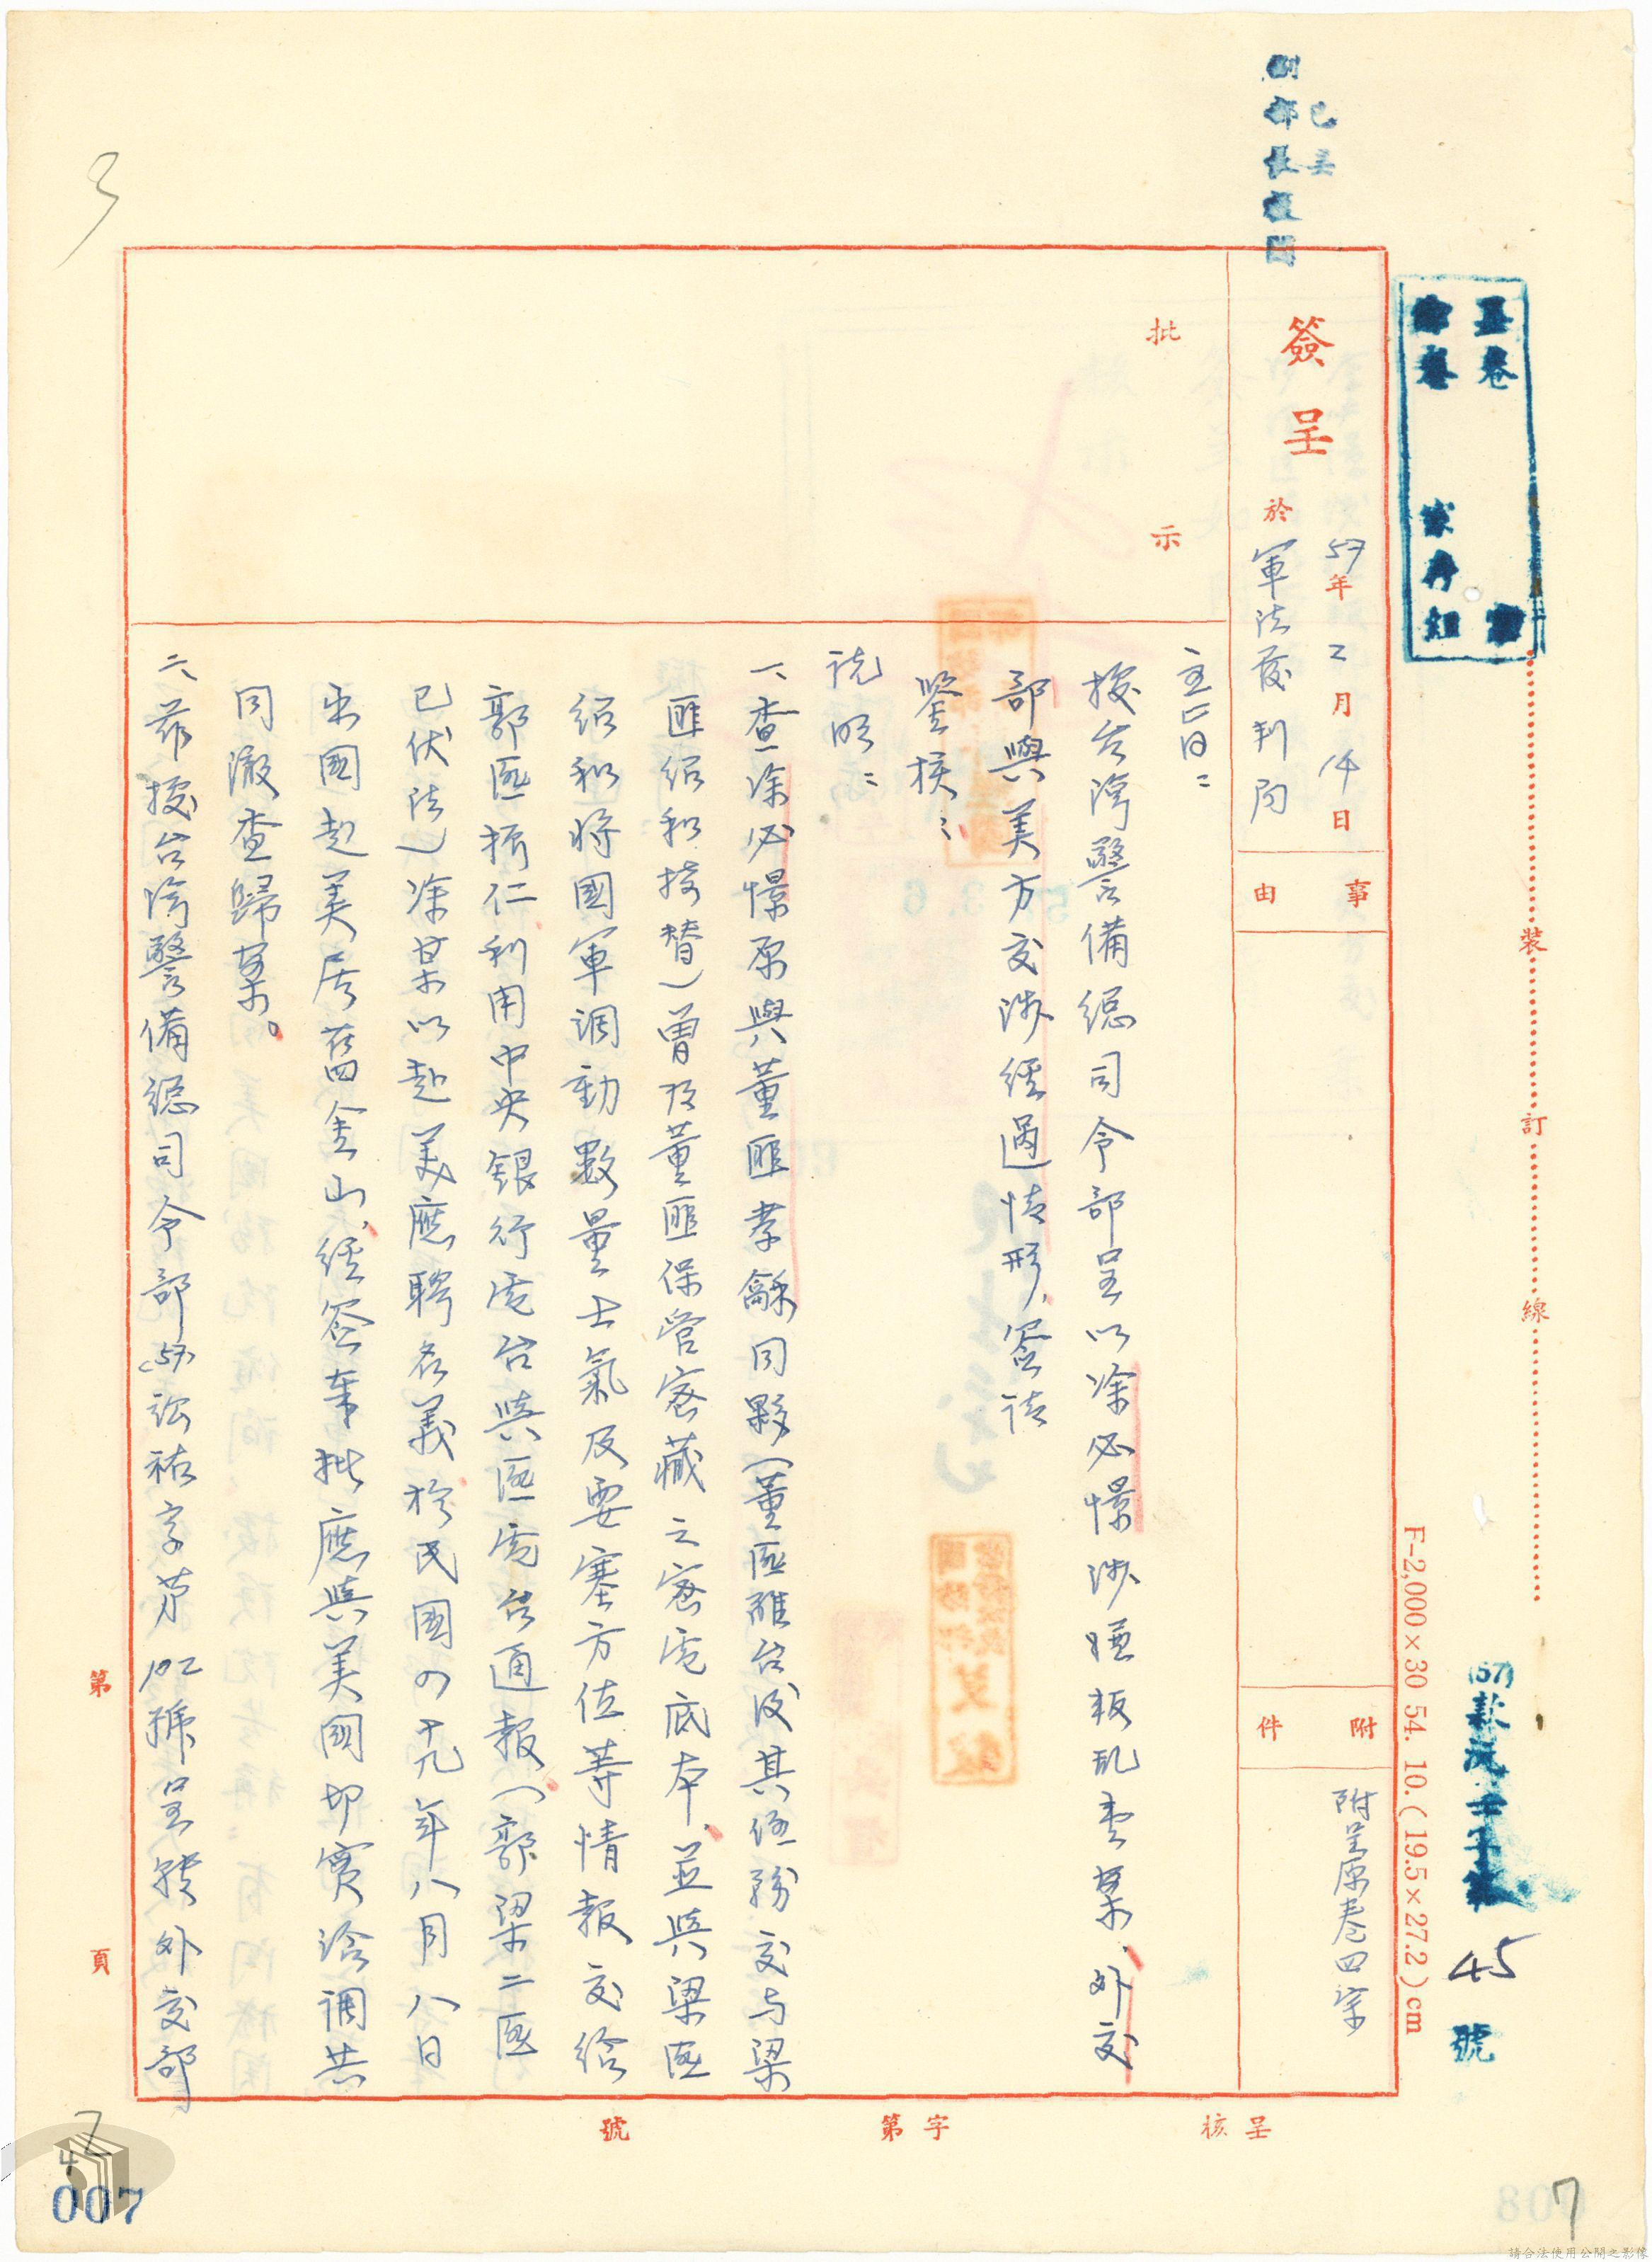 已呈
副部長核閱
正卷
宗卷
簽呈
57年2月14日
於軍法覆判局
事由
附件
附呈原卷四宗
批示
主旨：
據台灣警備總司令部呈以涂必憬涉嫌叛乱壹案，外交
部與美方交涉經過情形，簽請
鑒核：
說明：
一、查涂必憬原與董匪孝龢同夥（董匪離台後其任務交与梁
匪紹和接替）曾及董匪保管密藏之密電底本，並與梁匪
紹和將國軍調動數量士氣及要塞方位等情報交給
郭匪振仁利用中央銀行電台與匪電台通報（郭梁二匪
已伏法）涂某以赴美應聘名義於民國四十九年八月八日
出國赴美居舊金山，經簽奉批應與美國切實洽調共
同澈查歸案。
二、茲據台灣警備總司令部(57)訟祐字第102號呈犢外交部
第
頁
呈核
字第
號
裝
訂
線
F-2,000×30 54. 10. (19.5×27.2)cm
(57)
45
號
3
42
007
7
008
請合法使用公開之影像